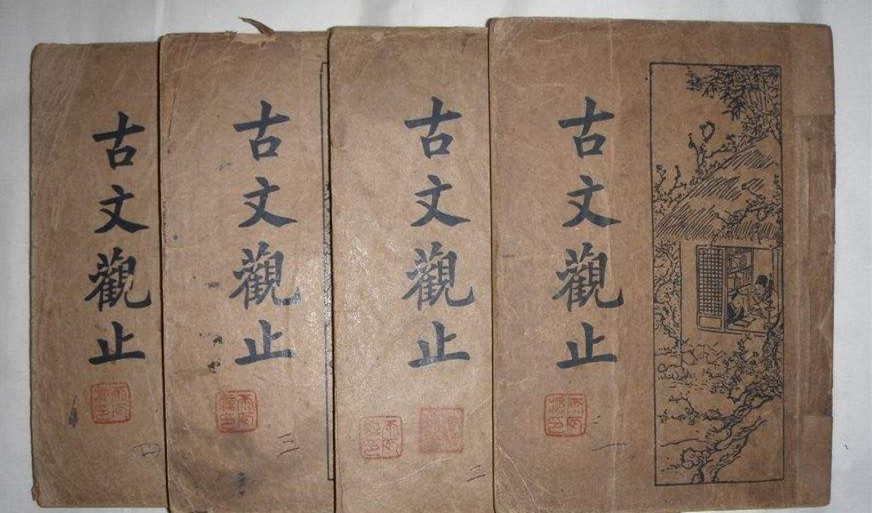 古文觀止
一
古文觀止
二
古文觀止
三
古文觀止
四